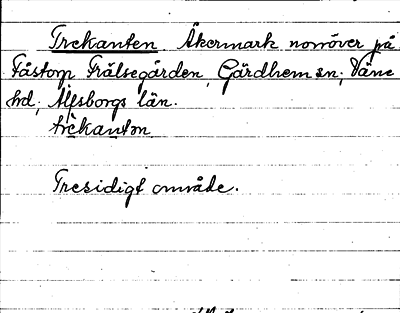 Trekanten. Åkermark norröver på
Fåstorp Frälsegården, Gärdhem sn; Väne
hd, Älfsborgs län.
trèkantən
Tresidigt område.